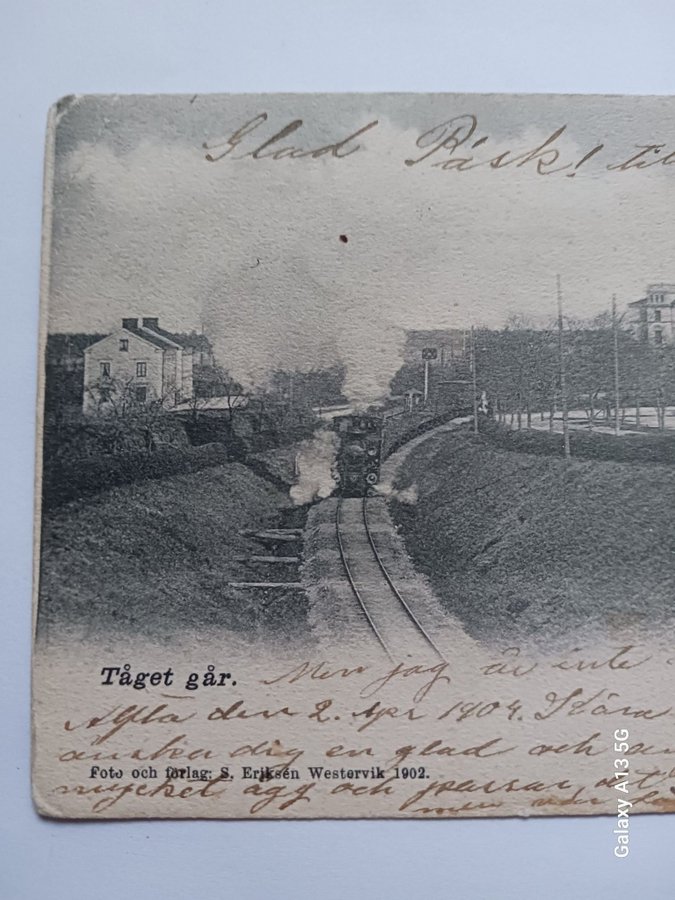 Glad Påsk! till
Tåget går. Men jag är inte
den 2. Apr 1904. Kära
önska dig en glad och
Foto och förlag: S. Eriksén Westervik 1902.
mycket ägg och passar det
men
Galaxy A13 5G